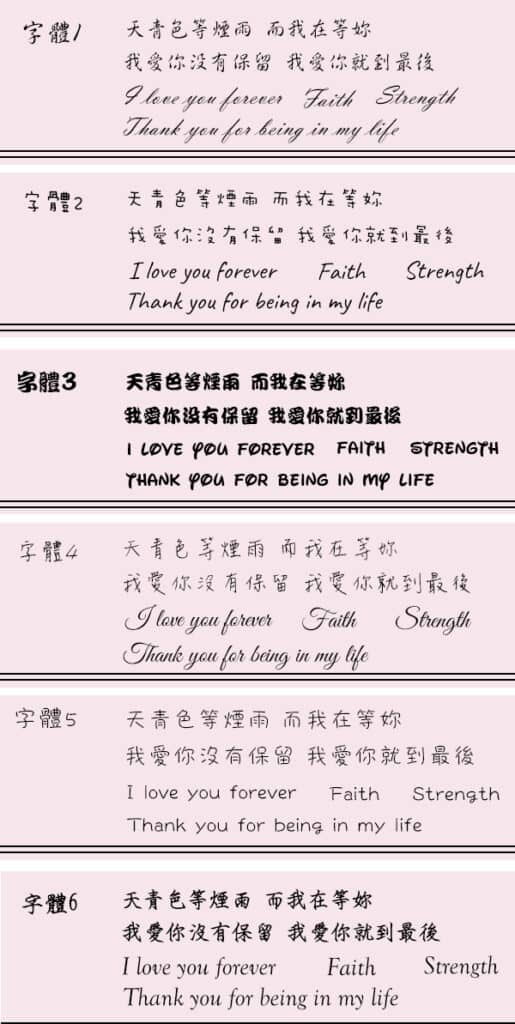 字體1
天青色等煙雨 而我在等妳
我愛你没有保留 我愛你就到最後
I love you forever Faith Strength
Thank you for being in my life
字體2
天青色等煙雨 而我在等妳
我愛你沒有保留 我愛你就到最後
I love you forever Faith Strength
Thank you for being in my life
字體3
天青色等煙雨 而我在等妳
我愛你没有保留 我愛你就到最後
I LOVE YOU FOREVER FAITH STRENGTH
THANK YOU FOR BEING IN MY LIFE
字體4
天青色等煙雨 而我在等妳
我愛你沒有保留 我愛你就到最後
I love you forever Faith Strength
Thank you for being in my life
字體5
天青色等煙雨 而我在等妳
我愛你沒有保留 我愛你就到最後
I love you forever Faith Strength
Thank you for being in my life
字體6
天青色等煙雨 而我在等妳
我愛你沒有保留 我愛你就到最後
I love you forever Faith Strength
Thank you for being in my life